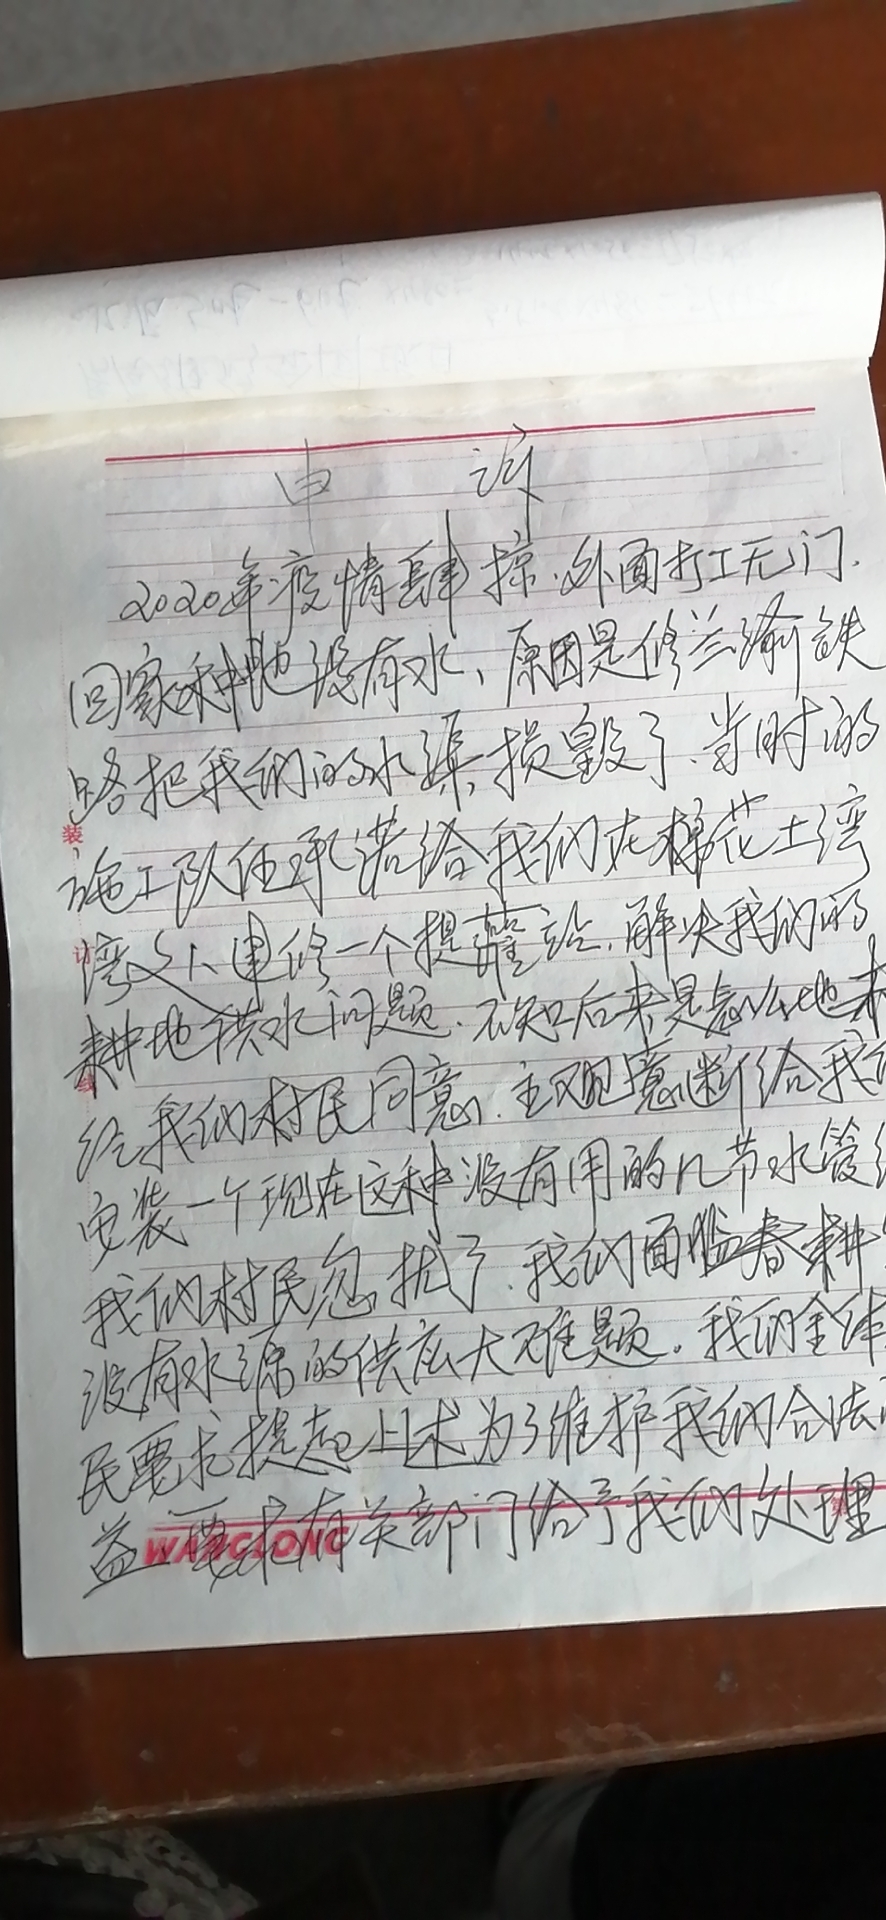 申 诉
2020年疫情肆掠.外面打工无门.
回家种地没有水、原因是修兰渝铁
路把我们的水渠损毁了.当时的
施工队伍承诺给我们在棉花土湾
湾 建修一个提灌站.解决我们的
耕地供水问题.不知后来是怎么地未
经我们村民同意.主观意断给我们
安装一个现在这种没有用的几节水管
我们村民忽扰了.我们面临春耕
没有水源的供应大难题.我们全体
民要求提起上述为了维护我们合法
益.要求有关部门给予我们处理
装
订
线
WANGLONG
第